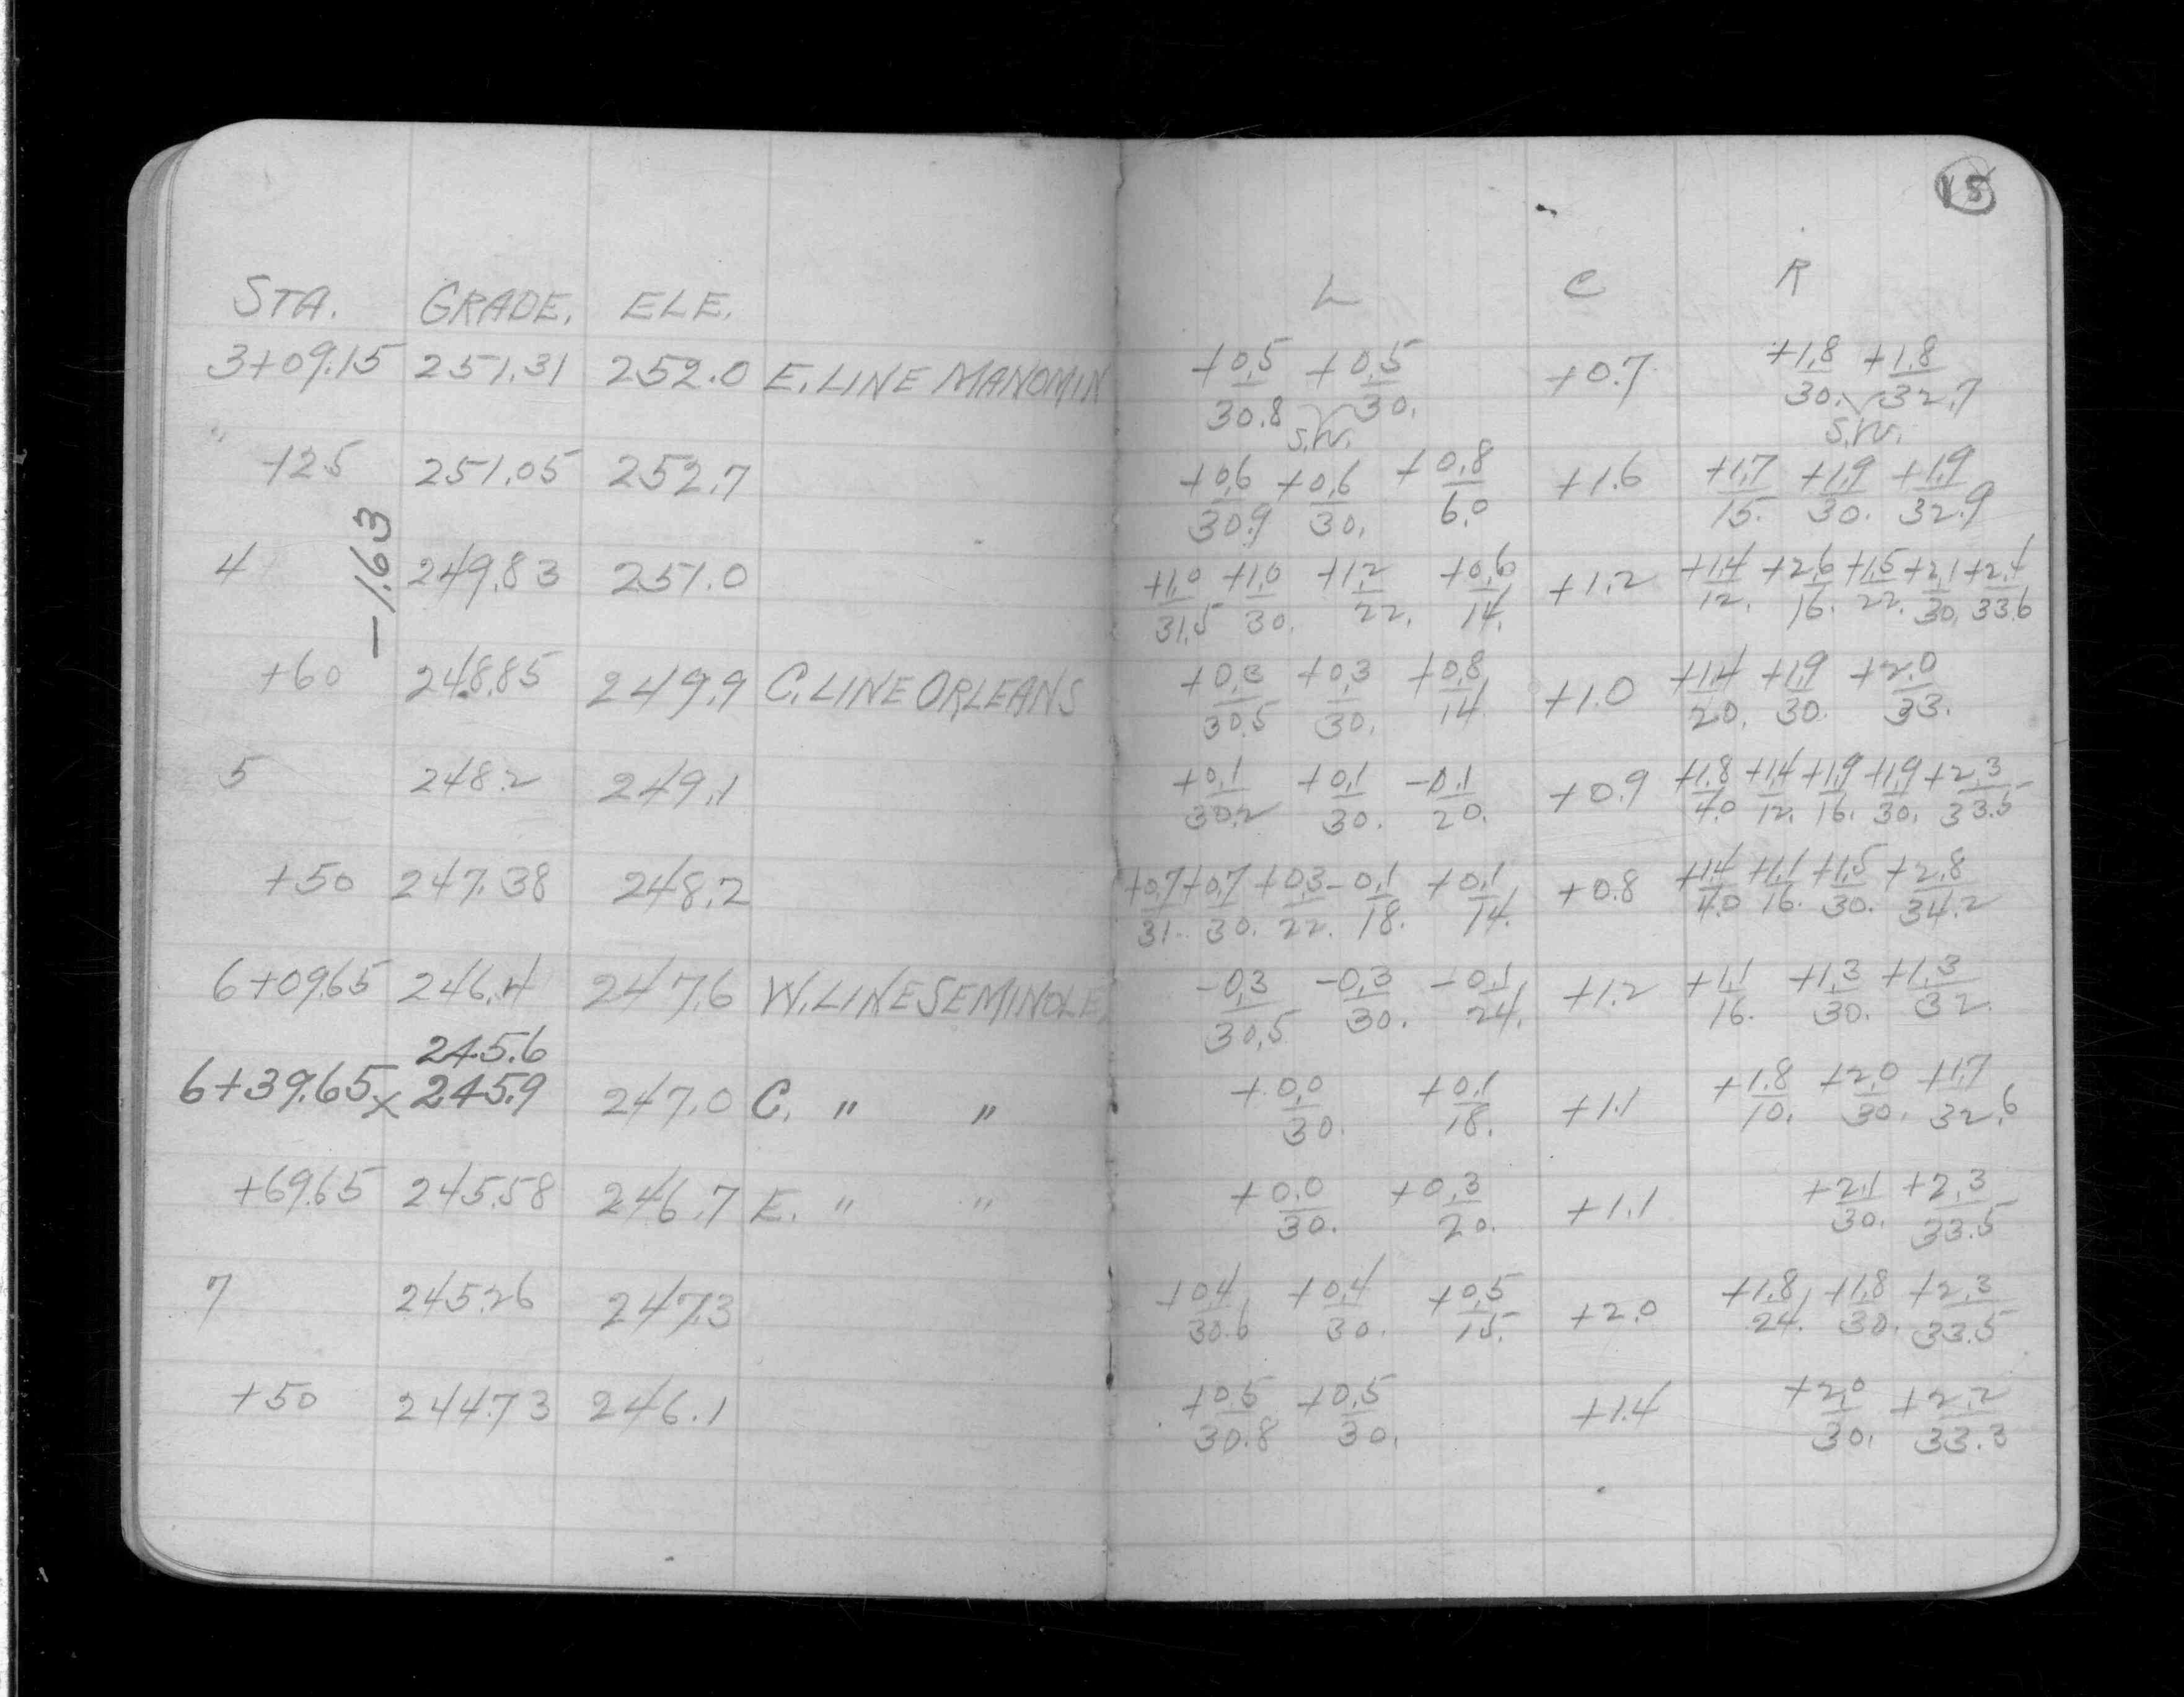 15
STA. GRADE. ELE. L C R
3+09.15 251.31 252.0 E. LINE MANOMIN +0.5/30.8 +0.5/30. S.W. +0.7 +1.8/30. +1.8/32.7 S.W.
"
+25 251.05 252.7 +0.6/30.9 +0.6/30. +0.8/6.0 +1.6 +1.7/15. +1.9/30. +1.9/32.9
-1.63
4 249.83 251.0 +1.0/31.5 +1.0/30. +1.2/22. +0.6/14. +1.2 +1.4/12. +2.6/16. +1.5/22. +2.1/30. +2.4/33.6
+60 248.85 249.9 C. LINE ORLEANS +0.3/30.5 +0.3/30. +0.8/14. +1.0 +1.4/20. +1.9/30. +2.0/33.
5 248.2 249.1 +0.1/30.2 +0.1/30. -0.1/20. +0.9 +1.8/4.0 +1.4/12. +1.9/16. +1.9/30. +2.3/33.5
+50 247.38 248.2 +0.7/31. +0.7/30. +0.3/22. -0.1/18. +0.1/14. +0.8 +1.4/4.0 +1.1/16. +1.5/30. +2.8/34.2
6+09.65 246.4 247.6 W. LINE SEMINOLE -0.3/30.5 -0.3/30. -0.1/24. +1.2 +1.1/16. +1.3/30. +1.3/32.
245.6
6+39.65 x 245.9 247.0 C. " " +0.0/30. +0.1/18. +1.1 +1.8/10. +2.0/30. +1.7/32.6
+69.65 245.58 246.7 E. " " +0.0/30. +0.3/20. +1.1 +2.1/30. +2.3/33.5
7 245.26 247.3 +0.4/30.6 +0.4/30. +0.5/15. +2.0 +1.8/24. +1.8/30. +2.3/33.5
+50 244.73 246.1 +0.5/30.8 +0.5/30. +1.4 +2.0/30. +2.2/33.3